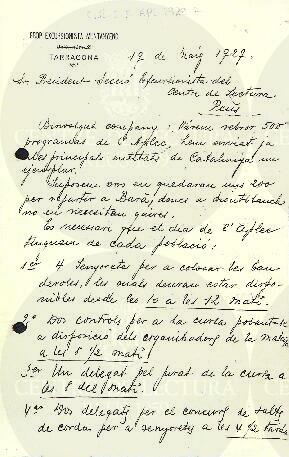 GRUP EXCURSIONISTA MUNTANYENC
TARRAGONA
12 de Maig 1927.
Sr. President Secció Excursionista del
Centre de Lectura
Reus
Benvolgut company: Varem rebrer 500
programas de l'Aplec, hem enviat ja
a les principals entitats de Catalunya un
exemplar.
Suposem ens en quedaran uns 200
per repartir a Barà, doncs a Montblanch
no en necesitan gaires.
Es necesari que el dia de l'Aplec
tinguem de cada població:
1er 4 Senyoretas per a colocar les ban
deroles, i les quals deuran estar dispo
nibles desde les 10 a les 12 matí.
2on Dos controls per a la cursa pedestre
a disposició dels organisadors de la mateixa
a les 5 1/2 matí.
3er Un delegat pel jurat de la cursa a
les 6 del matí.
4art Dos delegats per el concurs de salts
de corda per a senyoretes a les 4 1/2 tarda